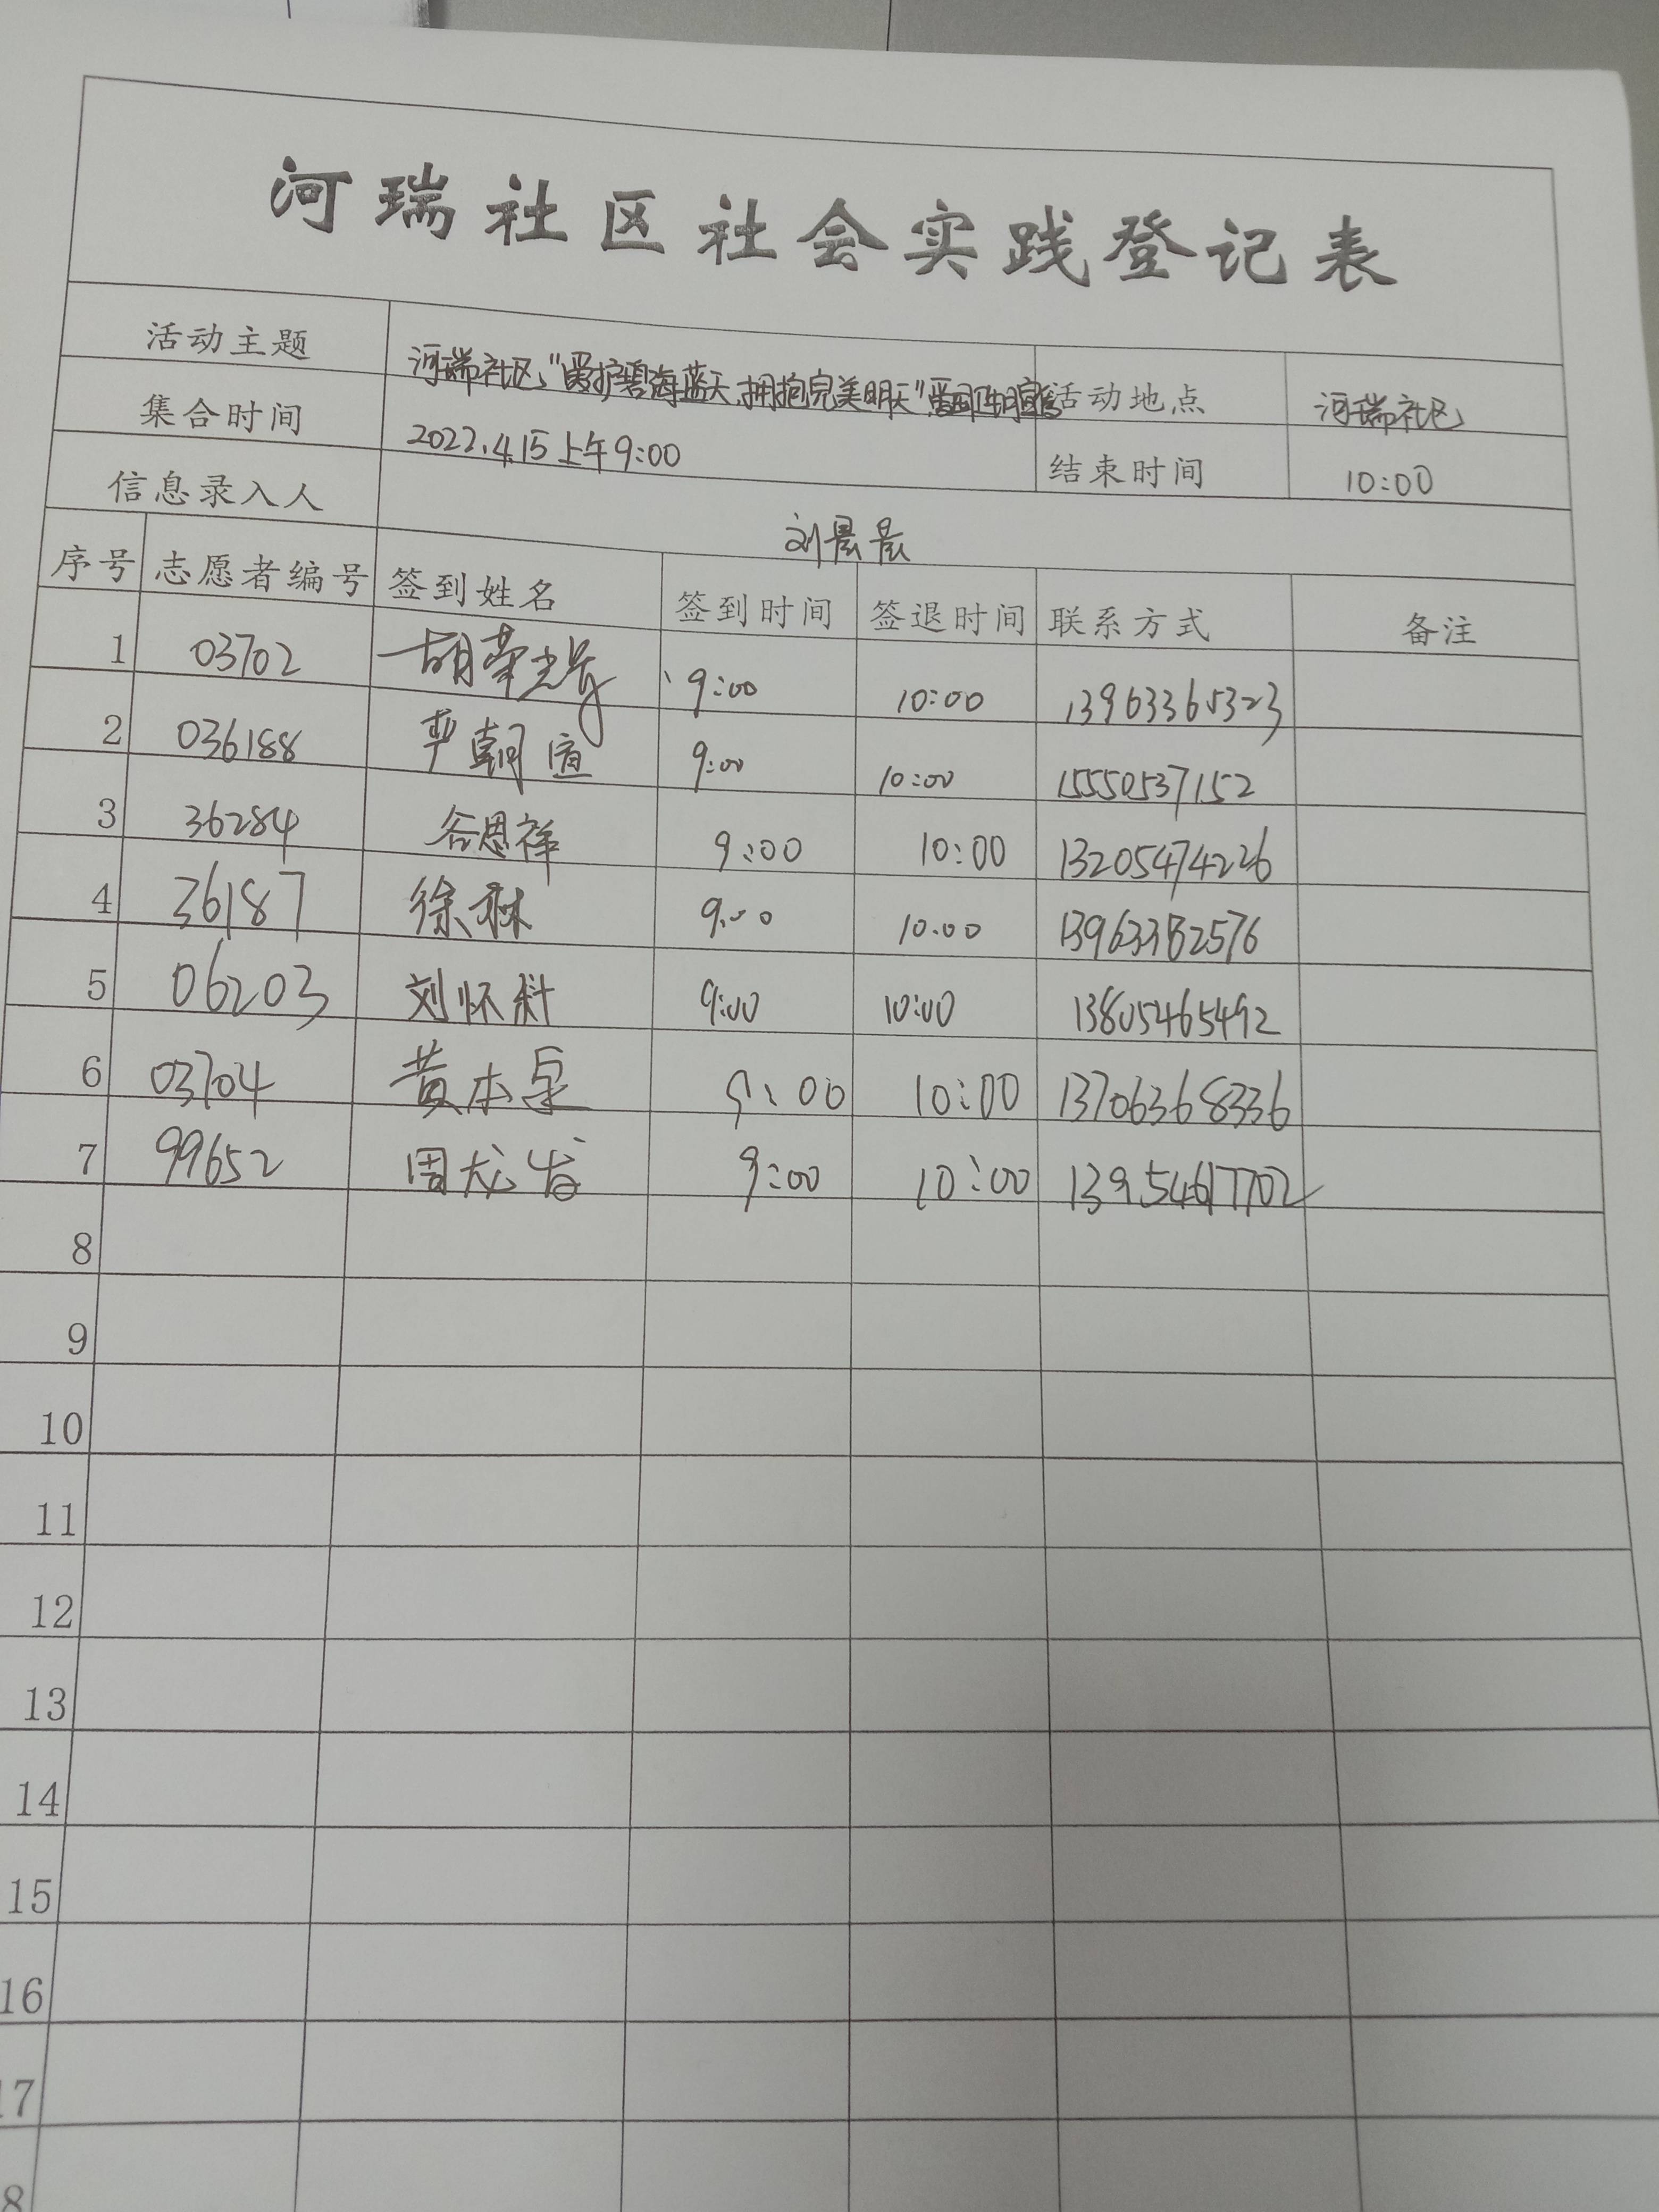 河瑞社区社会实践登记表
活动主题 河瑞社区"爱护碧海蓝天,拥抱完美明天" 活动地点 河瑞社区
集合时间 2022.4.15上午9:00 结束时间 10:00
信息录入人 刘晨晨
序号 志愿者编号 签到姓名 签到时间 签退时间 联系方式 备注
1 03702 胡荣 9:00 10:00 13963365323
2 036188 朝 9:00 10:00 15550537152
3 36284 谷恩祥 9:00 10:00 13205474226
4 36187 徐林 9:00 10:00 13963382576
5 06203 刘怀科 9:00 10:00 13805465492
6 03704 黄本 9:00 10:00 13706368336
7 99652 周龙 9:00 10:00 13954617702
8
9
10
11
12
13
14
15
16
17
8